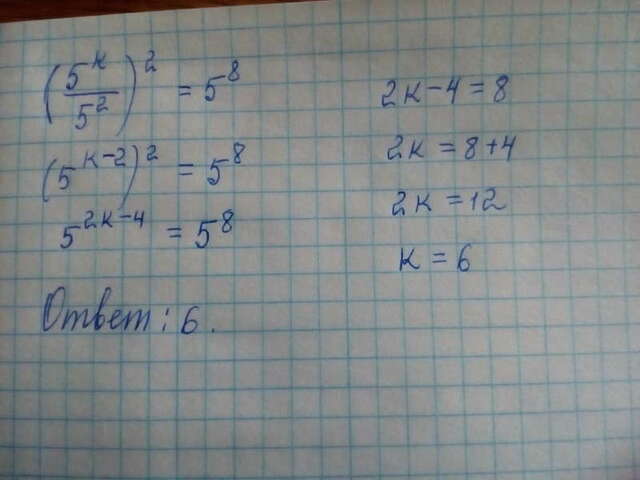 (5^к/5^2)^2 = 5^8
(5^к-2)^2 = 5^8
5^2к-4 = 5^8
2к-4=8
2к=8+4
2к=12
к=6
Ответ: 6.